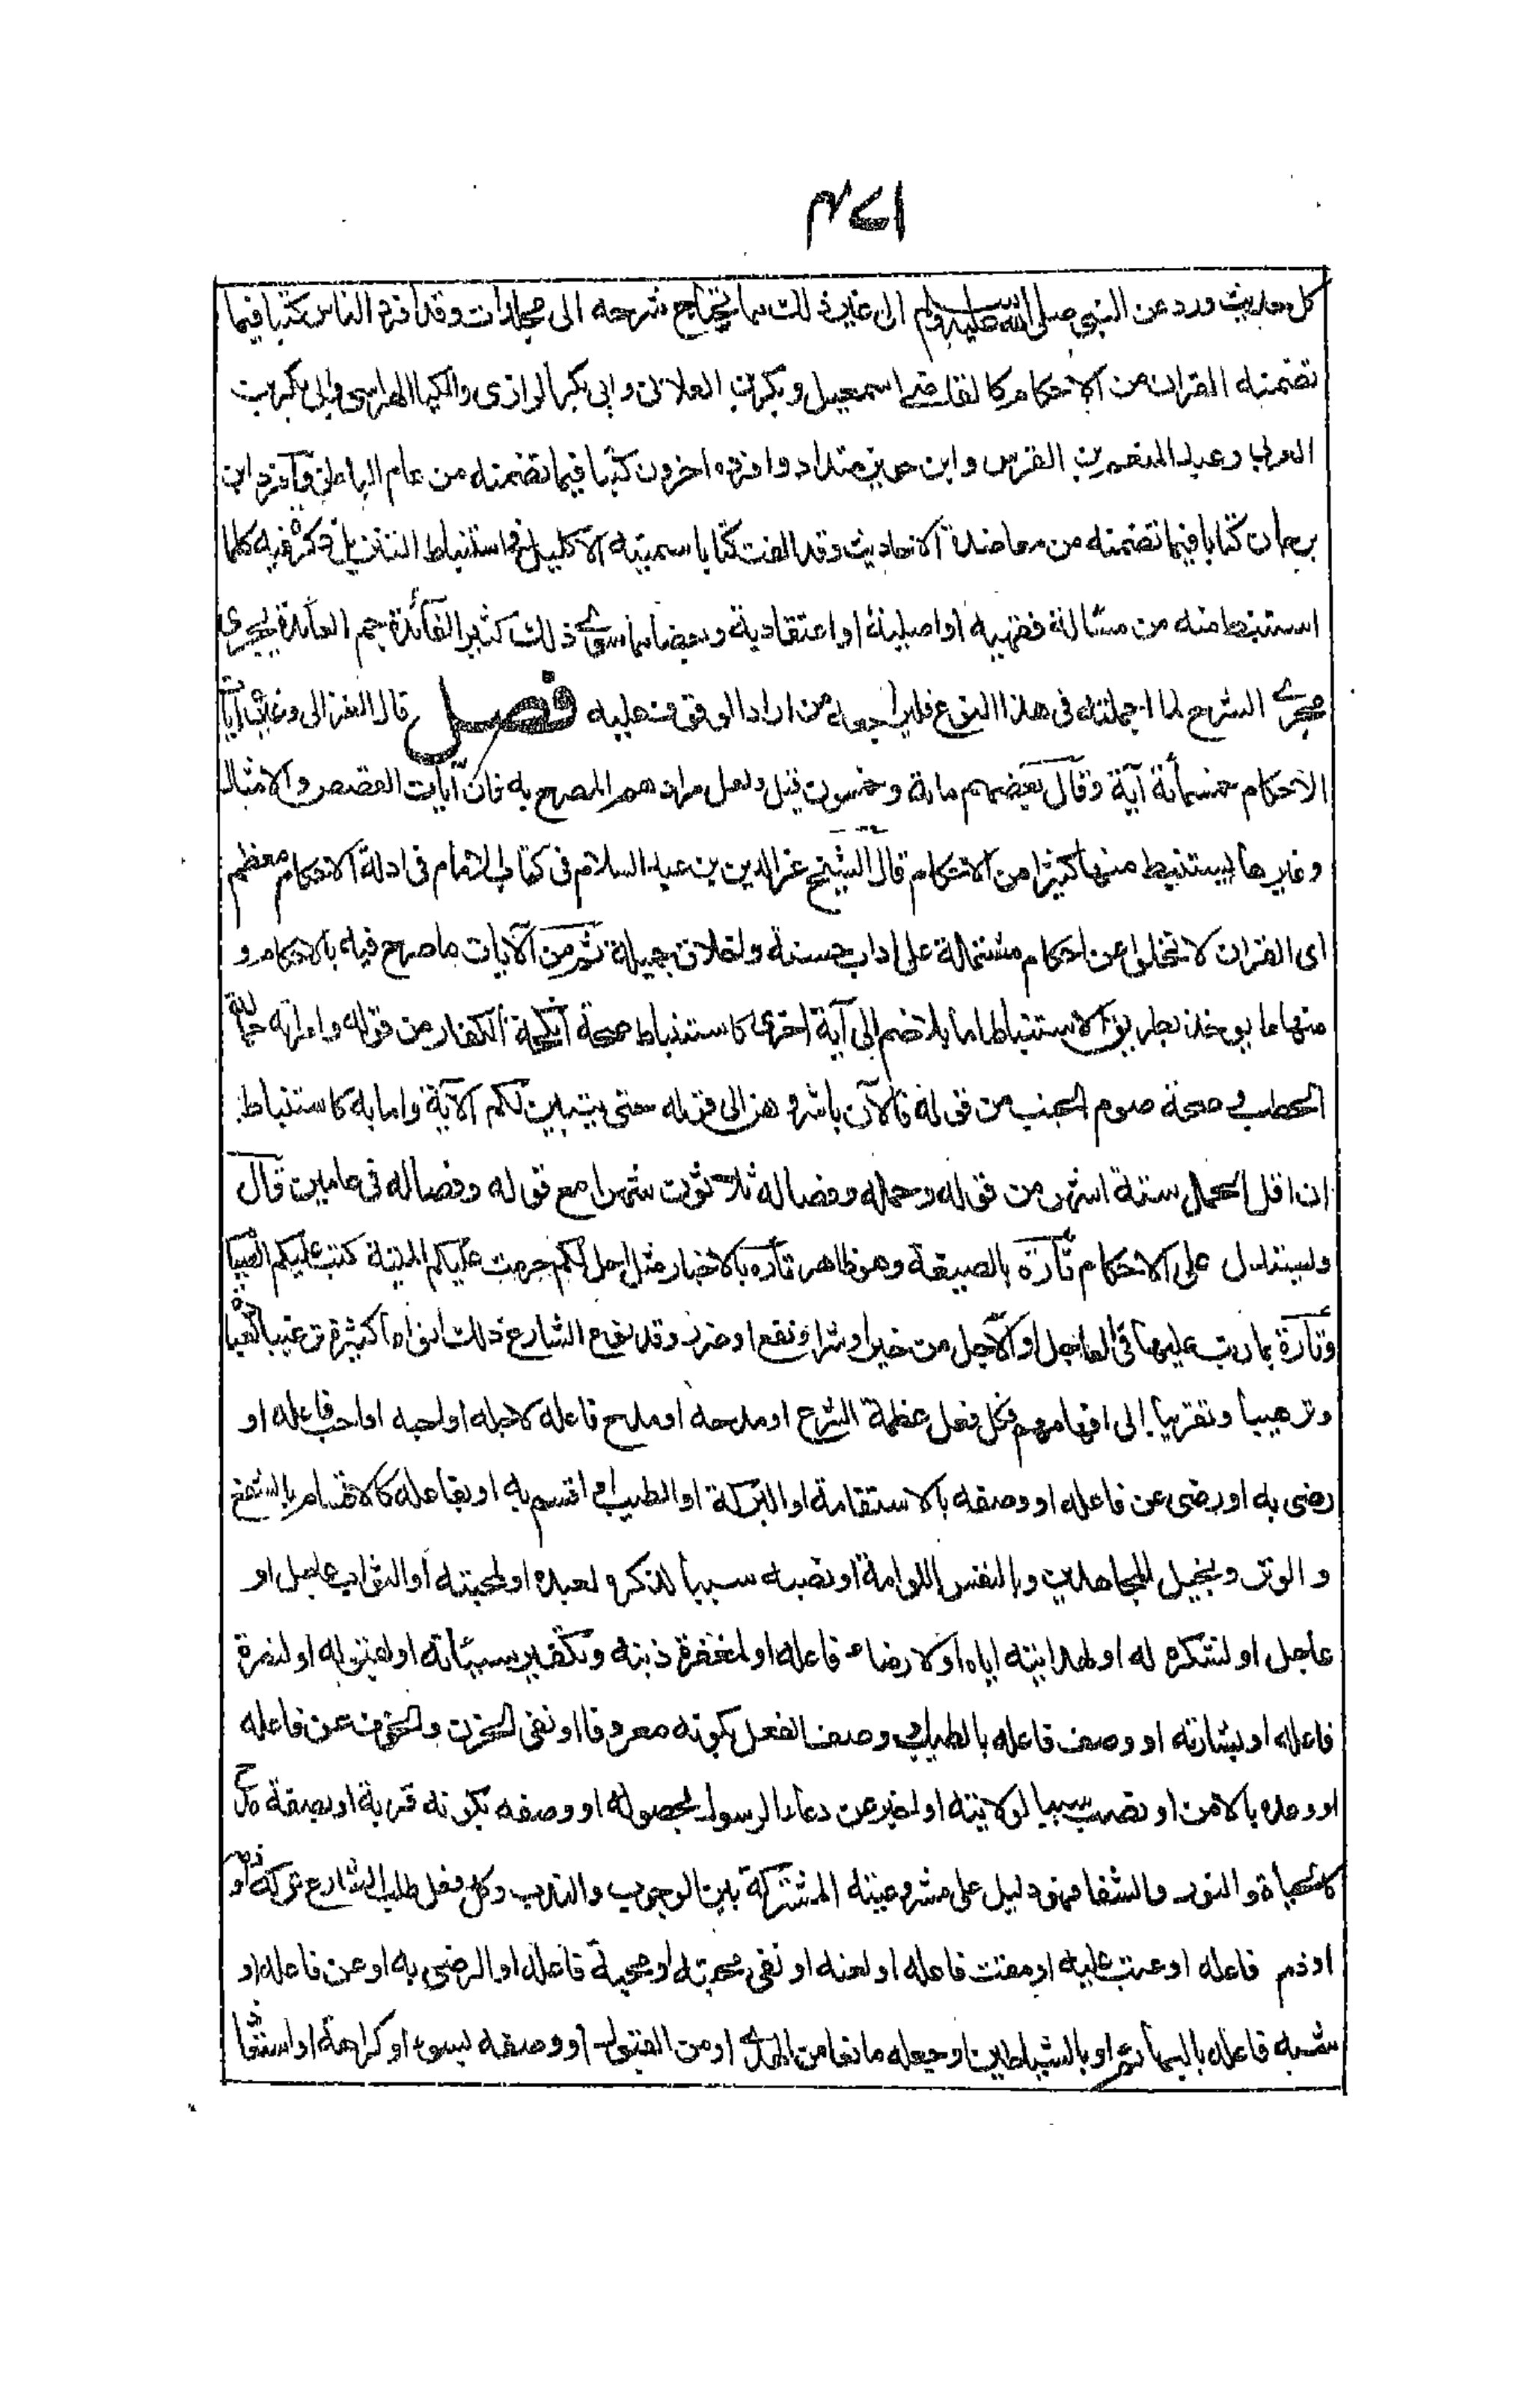 ٤٧١
كل حديث ورد عن النبي صلى الله عليه وسلم الى غير ذلك مما يحتاج شرحه الى مجلدات وقد افرد الناس كتبا فيما
تضمنه القران من الاحكام كالقاضى اسمعيل وبكر بن العلا وابى بكر الرازى والكيا الهراسى وابى بكر بن
العربى وعبد المنعم بن الفرس وابن خويز منداد وافرد اخرون كتبا فيما تضمنه من علم الباطن وافرد ابن
برجان كتابا فيما تضمنه من معاضدة الاحاديث وقد الفت كتابا سميته الاكليل فى استنباط التنزيل ذكرت فيه كلما
استنبط منه من مسألة فقهيه او اصلية او اعتقادية وبعضا مما سوى ذلك كثير الفائدة جم العائدة يجرى
مجرى الشرح لما اجملته فى هذا النوع فليراجعه من اراد الوقوف عليه فصل قال الغزالى وغيره آيات
الاحكام خمسمأئة آية وقال بعضهم مائة وخمسون قيل ولعل مرادهم المصرح به فان آيات القصص والامثال
وغيرها يستنبط منها كثيرا من الاحكام قال الشيخ عز الدين بن عبد السلام فى كتاب الامام فى ادلة الاحكام معظم
اى القران لا تخلو عن احكام مشتملة على اداب حسنة واخلاق جميلة ثم من الآيات ما صرح فيه بالاحكام و
منها ما يوخذ بطريق الاستنباط اما بلا ضم الى آية اخرى كاستنباط صحة انكحة الكفار من قوله وامراته حمالة
الحطب وصحة صوم الجنب من قوله فالآن باشروهن الى قوله حتى يتبين لكم الآية واما به كاستنباط
ان اقل الحمل ستة اشهر من قوله وحمله وفصاله ثلاثون شهرا مع قوله وفصاله فى عامين قال
ويستدل على الاحكام تارة بالصيغة وهو ظاهر وتارة بالاخبار مثل احل لكم حرمت عليكم الميتة كتب عليكم الصيام
وتارة بما رتب عليها فى العاجل او الآجل من خير او شر او نفع او ضر وقد نوع الشارع ذلك انواعا كثيرة ترغيبا لعباده
وترهيبا وتقريبا الى افهامهم فكل فعل عظمة الشرع او مدحه او مدح فاعله لاجله او احبه او احب فاعله او
رضى به او رضى عن فاعله او وصفه بالاستقامة او البركة او الطيب او اقسم به او بفاعله كالاقسام بالشفع
والوتر وبخيل المجاهدين وبالنفس اللوامة او نصبه سببا لذكره لعبده او لمحبته او الثواب عاجل او
عاجل او لشكره له او لهدايته اياه او لارضاء فاعله او لمغفرة ذنبه وتكفير سيئاته او لقبوله او لنصرة
فاعله او بشارته او وصف فاعله بالطيب او وصف الفعل بكونه معروفا او نفى الحزن والخوف عن فاعله
او وعده بالامن او نصب سببا لولايته او اخبر عن دعاء الرسول بحصوله او وصفه بكونه قربة او بصفة مدح
كالحياة والنور والشفا فهو دليل على مشروعيته المشتركة بين الوجوب والندب وكل فعل طلب الشارع تركه او ذمه
او ذم فاعله او عتب عليه او مقت فاعله او لعنه او نفى محبته او محبة فاعله او الرضى به او عن فاعله او
شبه فاعله بالبهائم او بالشياطين او جعله مانعا من الهدى او من القبول او وصفه بسوء او كراهة او استعاذ